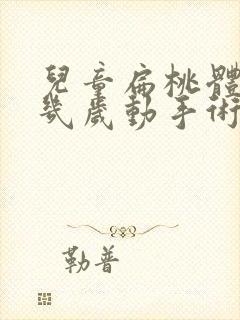 兒童扁桃體
幾歲動手術
勒普